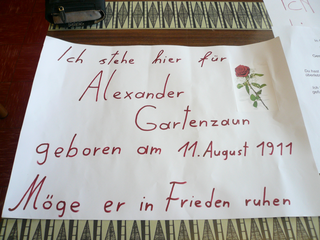 Ich stehe hier für
Alexander
Gartenzaun
geboren am 11. August 1911
Möge er in Frieden ruhen